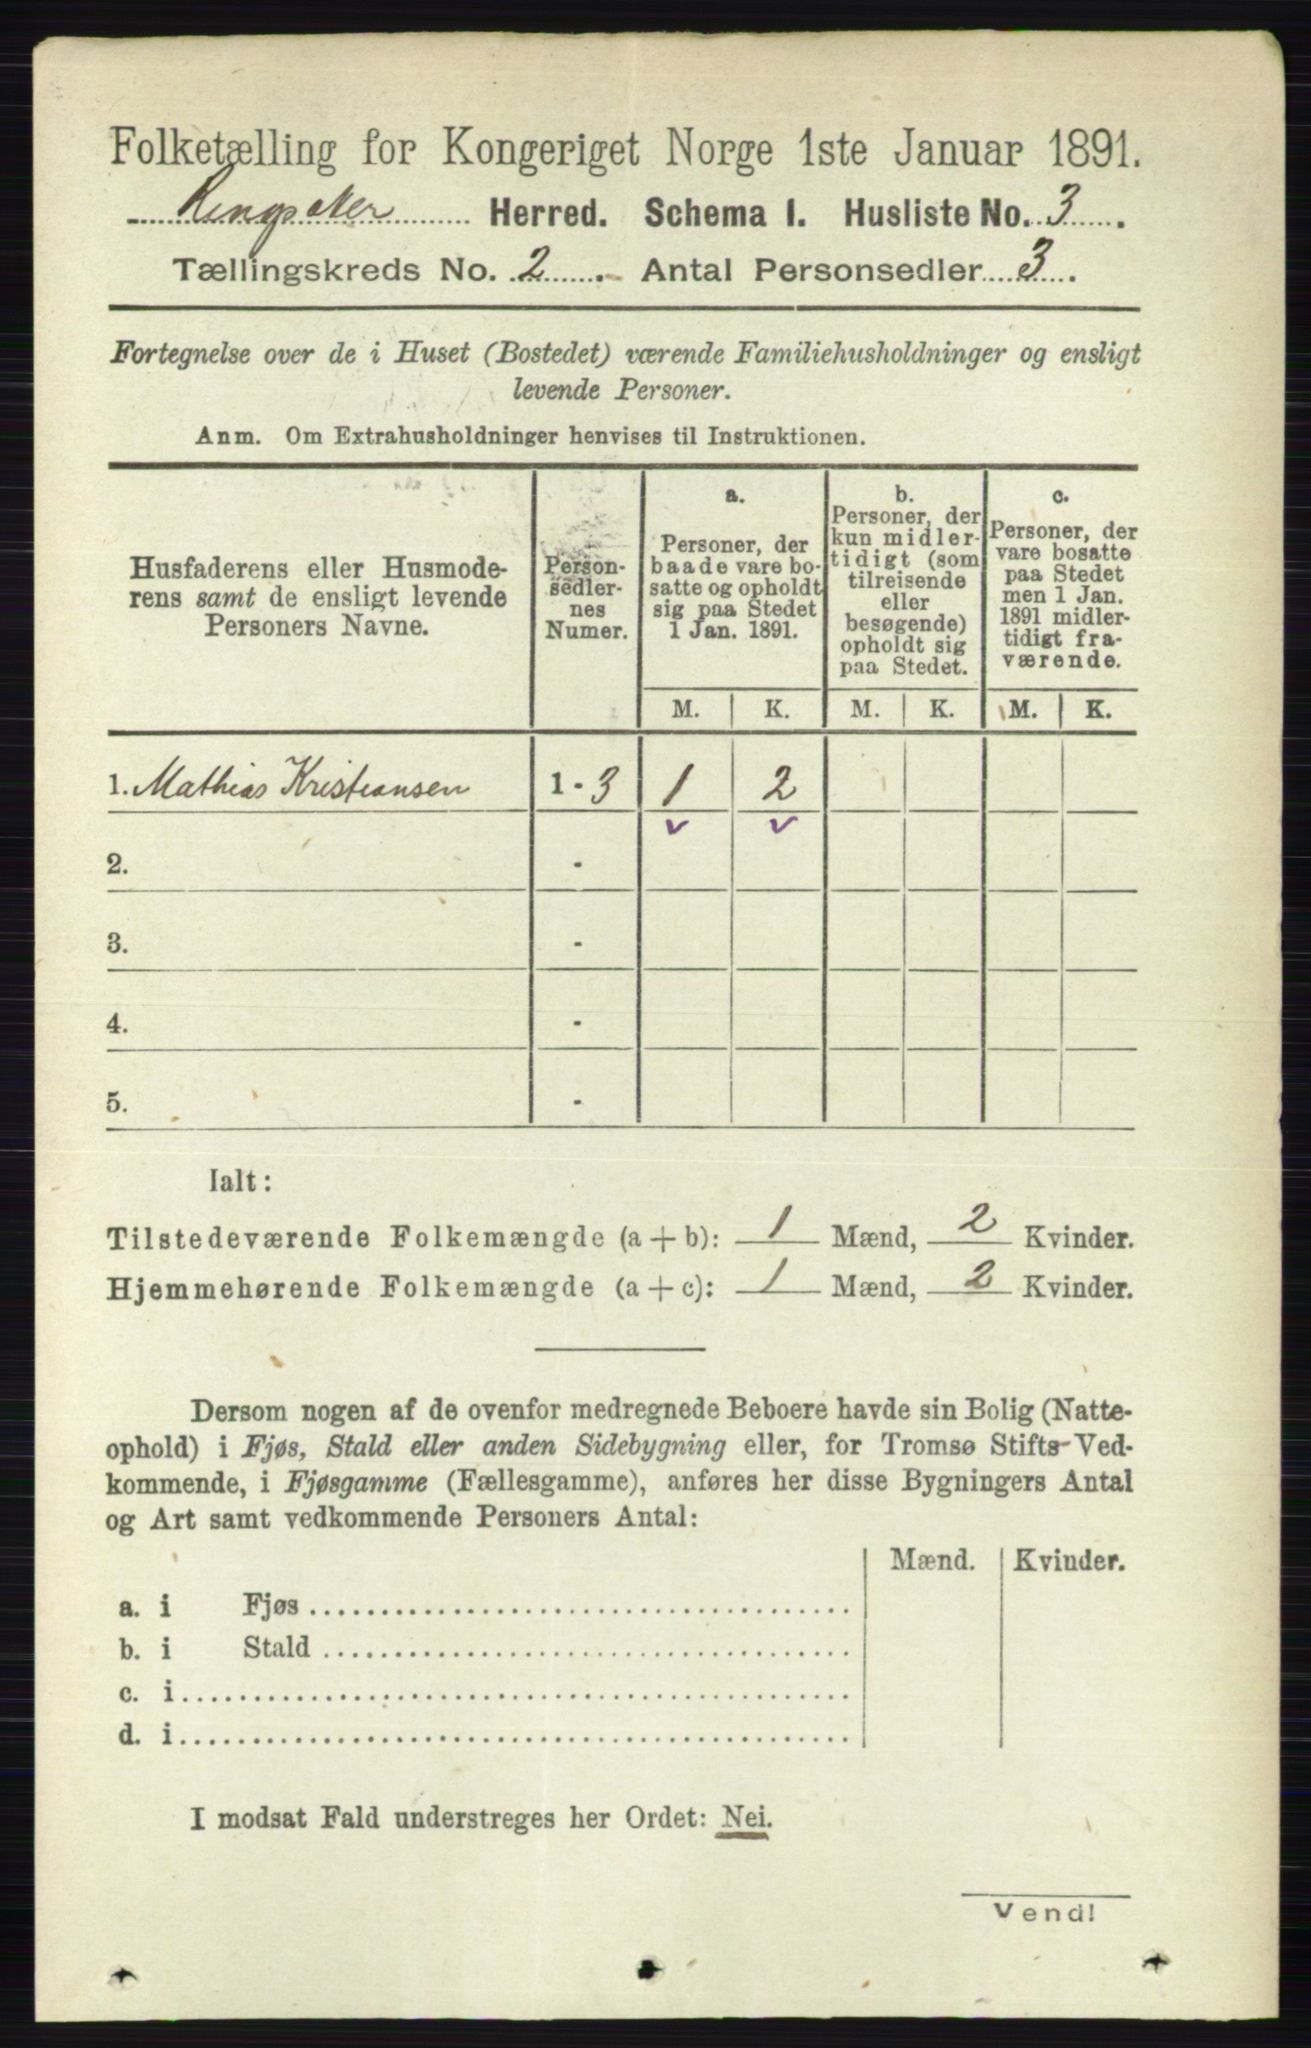 Folketælling for Kongeriget Norge 1ste Januar 1891.
Ringsaker Herred. Schema I. Husliste No. 3.
Tællingskreds No. 2. Antal Personsedler 3.
Fortegnelse over de i Huset (Bostedet) værende Familiehusholdninger og ensligt
levende Personer.
Anm. Om Extrahusholdninger henvises til Instruktionen.
Husfaderens eller Husmode-
rens samt de ensligt levende
Personers Navne.
Person-
sedler-
nes
Numer.
a.
Personer, der
baade vare bo-
satte og opholdt
sig paa Stedet
1 Jan. 1891.
b.
Personer, der
kun midler-
tidigt (som
tilreisende
eller
besøgende)
opholdt sig
paa Stedet.
c.
Personer, der
vare bosatte
paa Stedet
men 1 Jan.
1891 midler-
tidigt fra-
værende.
M. K. M. K. M. K.
1. Mathias Kristiansen 1 - 3 1 2
v v
2. -
3. -
4. -
5. -
Ialt:
Tilstedeværende Folkemængde (a + b): 1 Mænd, 2 Kvinder.
Hjemmehørende Folkemængde (a + c): 1 Mænd, 2 Kvinder.
Dersom nogen af de ovenfor medregnede Beboere havde sin Bolig (Natte-
ophold) i Fjøs, Stald eller anden Sidebygning eller, for Tromsø Stifts Ved-
kommende, i Fjøsgamme (Fællesgamme), anføres her disse Bygningers Antal
og Art samt vedkommende Personers Antal:
Mænd. Kvinder.
a. i Fjøs
b. i Stald
c. i
d. i
I modsat Fald understreges her Ordet: Nei.
Vend!